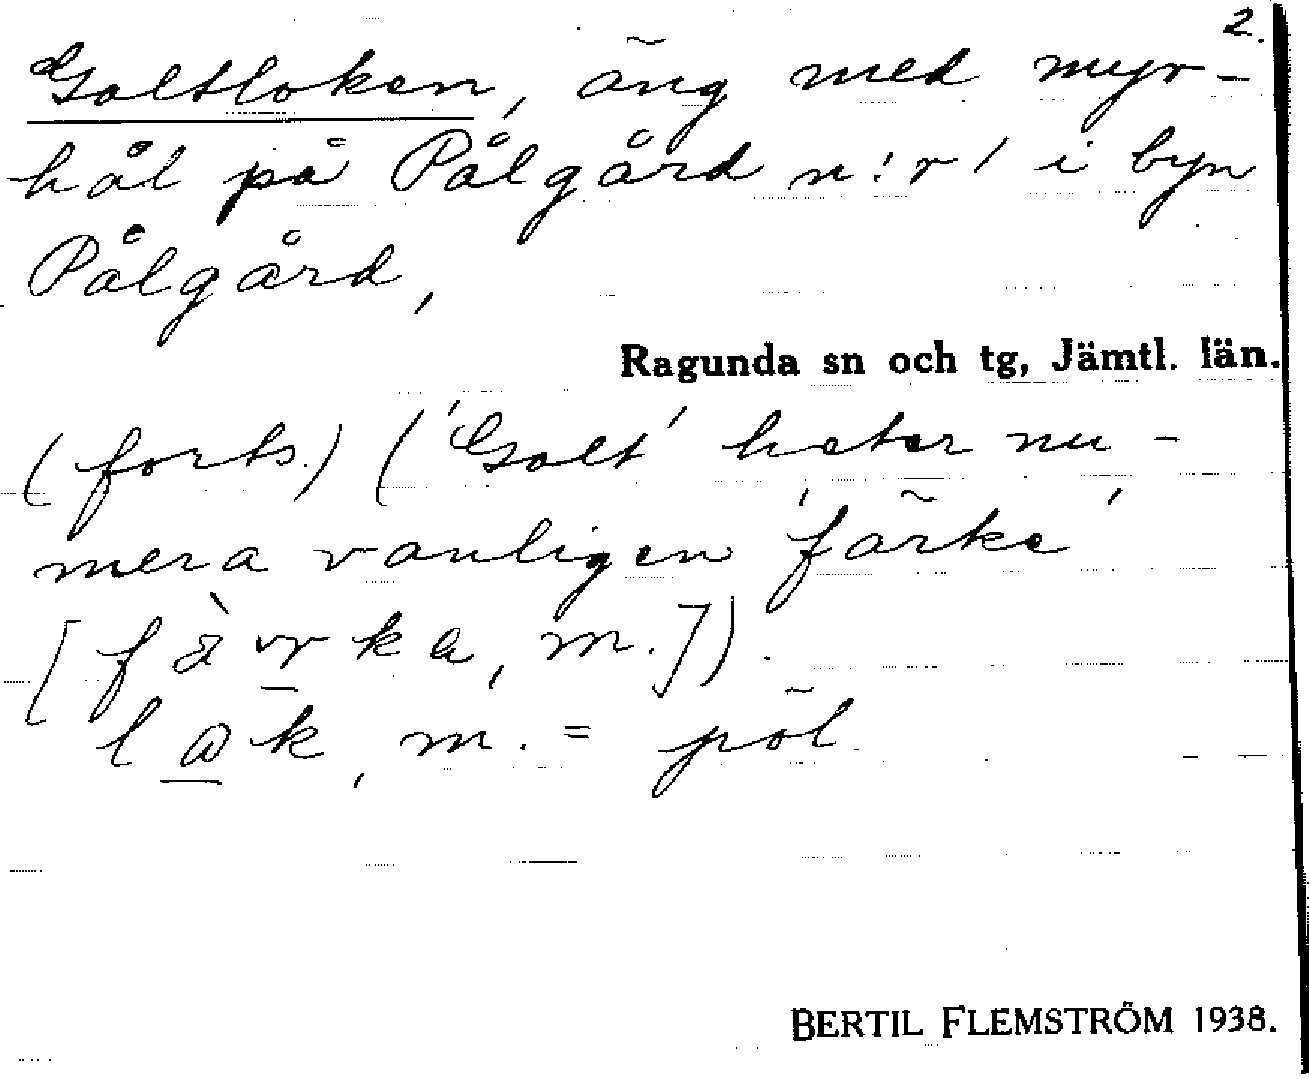 2.
Galtloken, äng med myr-
hål på Pålgård n:r 1 i byn
Pålgård,
Ragunda sn och tg, Jämtl. län.
(forts.) ('Galt' heter nu-
mera vanligen 'färke'
m.]).
m. = pöl
BERTIL FLEMSTRÖM 1938.